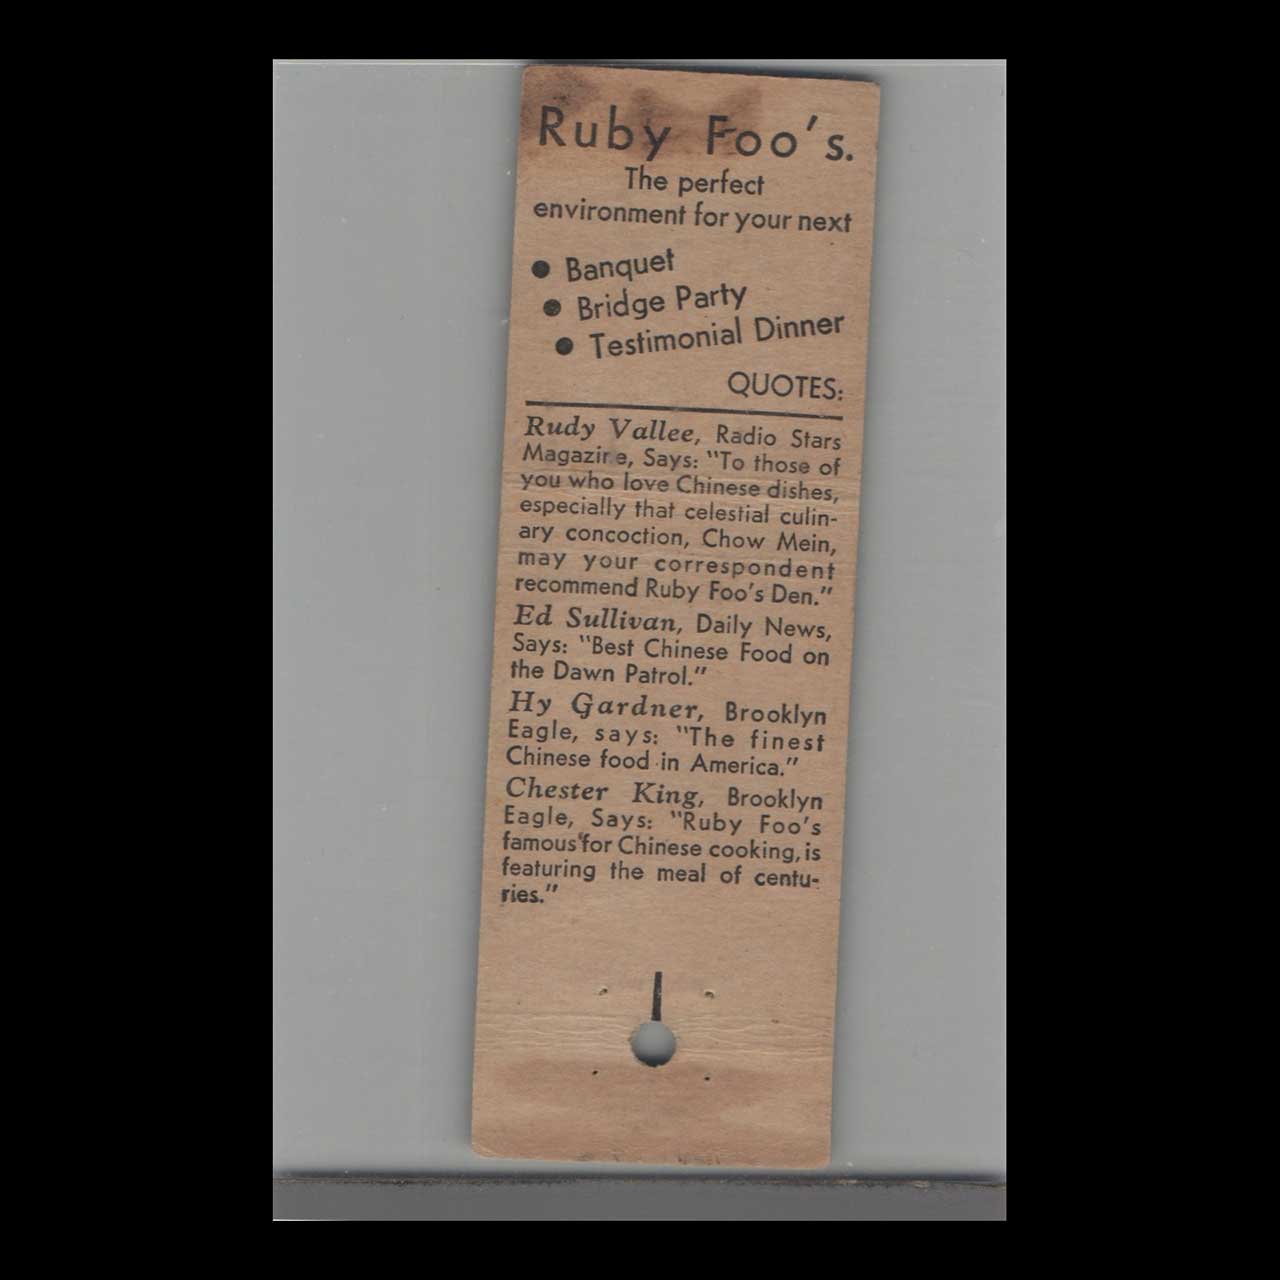 Ruby Foo's.
The perfect
environment for your next
● Banquet
● Bridge Party
● Testimonial Dinner
QUOTES:
Rudy Vallee, Radio Stars
Magazine, Says: "To those of
you who love Chinese dishes,
especially that celestial culin-
ary concoction, Chow Mein,
may your correspondent
recommend Ruby Foo's Den."
Ed Sullivan, Daily News,
Says: "Best Chinese Food on
the Dawn Patrol."
Hy Gardner, Brooklyn
Eagle, says: "The finest
Chinese food in America."
Chester King, Brooklyn
Eagle, Says: "Ruby Foo's
famous for Chinese cooking, is
featuring the meal of centu-
ries."